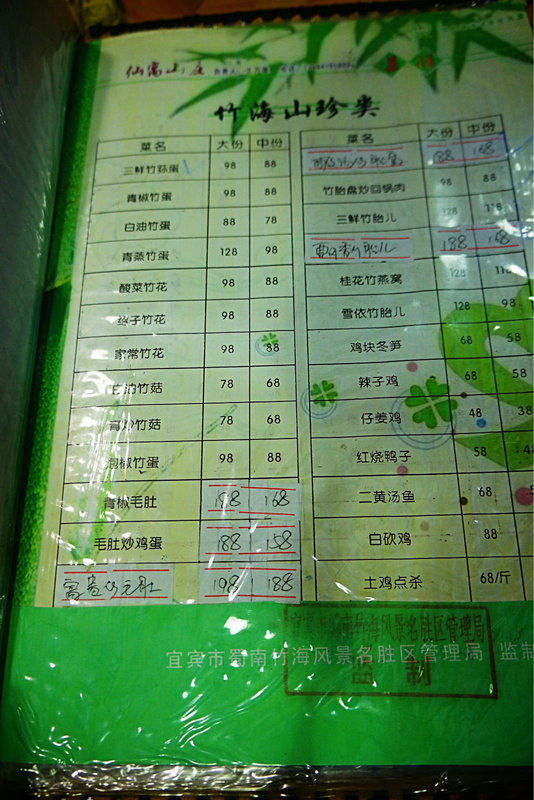 仙寓山庄
竹海山珍类
菜名 大份 中份
三鲜竹荪蛋 98 88
青椒竹蛋 98 88
白油竹蛋 88 78
青蒸竹蛋 128 98
酸菜竹花 98 88
竹花 98 88
家常竹花 98 88
白油竹菇 78 68
青炒竹菇 78 68
泡椒竹蛋 98 88
青椒毛肚 198 168
毛肚炒鸡蛋 188 158
198 188
菜名 大份 中份
188 168
竹胎盘炒回锅肉 98 88
三鲜竹胎儿 128 118
188 168
桂花竹燕窝 128
雪依竹胎儿 128 98
鸡块冬笋 68 58
辣子鸡 68 58
仔姜鸡 48 38
红烧鸭子 58
二黄汤鱼 68
白砍鸡 88
土鸡点杀 68/斤
宜宾市蜀南竹海风景名胜区管理局
监制
宜宾市蜀南竹海风景名胜区管理局 监制